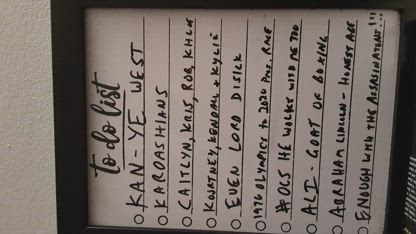 to do list
KAN-YE WEST
KARDASHIANS
CAITLYN, KRIS, ROB, KHLOE
KOURTNEY, KENDALL + KYLIE
EVEN LORD DISICK
1976 OLYMPICS to 2020 PRES. RACE
HE WALKS WITH ME TOO
ALI - GOAT OF BOXING
ABRAHAM LINCOLN - HONEST ABE
ENOUGH WITH THE ASSASINATIONS!!!